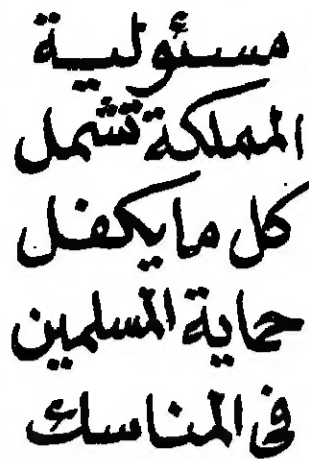 مسئولية
المملكة تشمل
كل ما يكفل
حماية المسلمين
فى المناسك